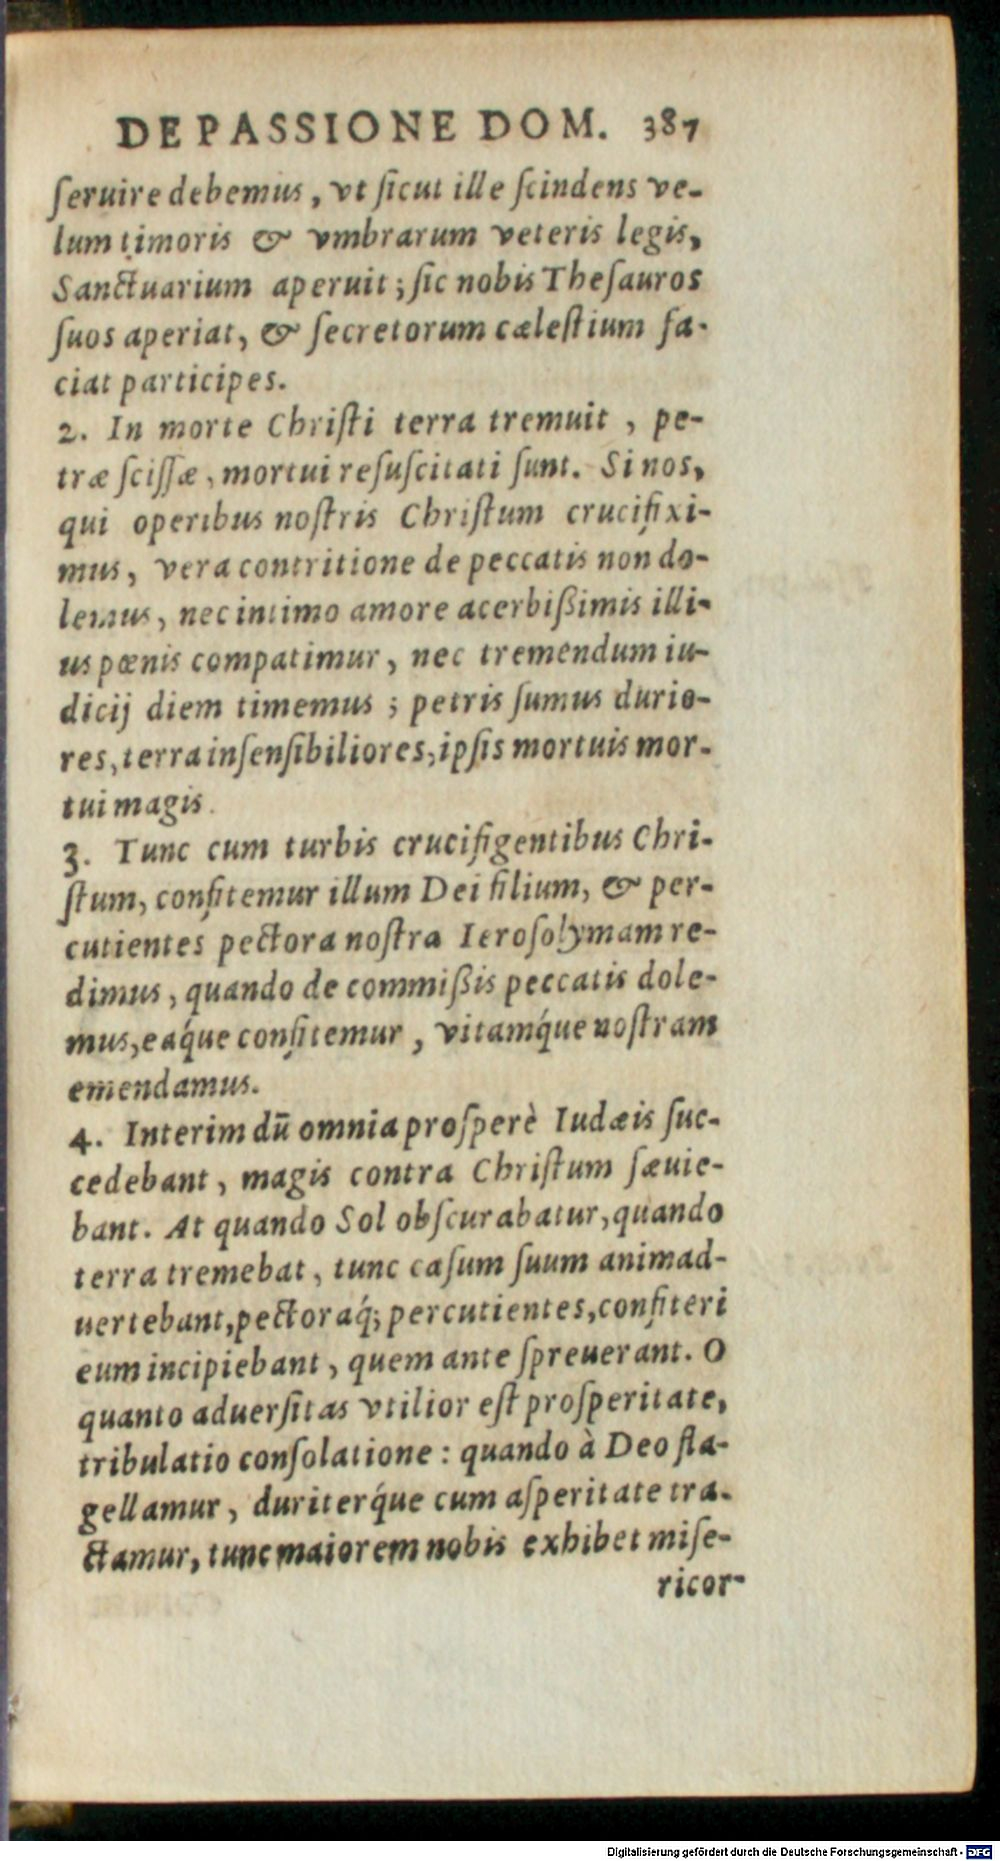 DE PASSIONE DOM. 387
ſeruire debemus, vt ſicut ille ſcindens ve-
lum timoris & vmbrarum veteris legis,
Sanctuarium aperuit; ſic nobis Theſauros
ſuos aperiat, & ſecretorum cæleſtium fa-
ciat participes.
2. In morte Chriſti terra tremuit, pe-
træ ſciſſæ, mortui reſuſcitati ſunt. Si nos,
qui operibus noſtris Chriſtum crucifixi-
mus, vera contritione de peccatis non do-
lemus, nec intimo amore acerbißimis illi-
us pœnis compatimur, nec tremendum iu-
dicij diem timemus; petris ſumus durio-
res, terra inſenſibiliores, ipſis mortuis mor-
tui magis.
3. Tunc cum turbis crucifigentibus Chri-
ſtum, confitemur illum Dei filium, & per-
cutientes pectora noſtra Ieroſolymam re-
dimus, quando de commißis peccatis dole-
mus, eaq́ue confitemur, vitamq́ue noſtram
emendamus.
4. Interim dū omnia proſperè Iudæis ſuc-
cedebant, magis contra Chriſtum ſæuie-
bant. At quando Sol obſcurabatur, quando
terra tremebat, tunc caſum ſuum animad-
uertebant, pectoraq́; percutientes, confiteri
eum incipiebant, quem ante ſpreuerant. O
quanto aduerſitas vtilior eſt proſperitate,
tribulatio conſolatione: quando à Deo fla-
gellamur, duriterq́ue cum aſperitate tra-
ctamur, tunc maiorem nobis exhibet miſe-
ricor-
Digitalisierung gefördert durch die Deutsche Forschungsgemeinschaft - DFG